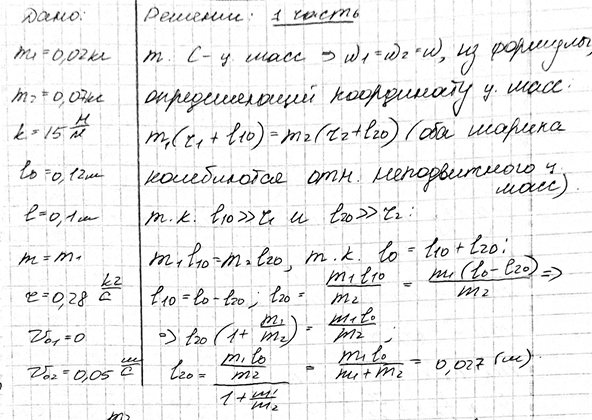 Дано:
m₁=0,02кг
m₂=0,07кг
k=15 Н/м
l₀=0,12м
l=0,1м
m=m₁
r=0,28 кг/с
v₀₁=0
v₀₂=0,05 м/с
Решение: 1 часть
т. С - ц. масс ⇒ ω₁=ω₂=ω, из формулы,
определяющей координату ц. масс:
m₁(r₁+l₁₀)=m₂(r₂+l₂₀) (оба шарика
колеблются отн. неподвижного ц.
масс).
т.к. l₁₀>>r₁ и l₂₀>>r₂:
m₁l₁₀=m₂l₂₀, т.к. l₀=l₁₀+l₂₀;
l₁₀=l₀-l₂₀; l₂₀= m₁l₁₀/m₂ = m₁(l₀-l₂₀)/m₂ ⇒
⇒ l₂₀(1+m₁/m₂)= m₁l₀/m₂;
l₂₀= (m₁l₀/m₂)/(1+m₁/m₂) = m₁l₀/(m₁+m₂) = 0,027(м)
m₂